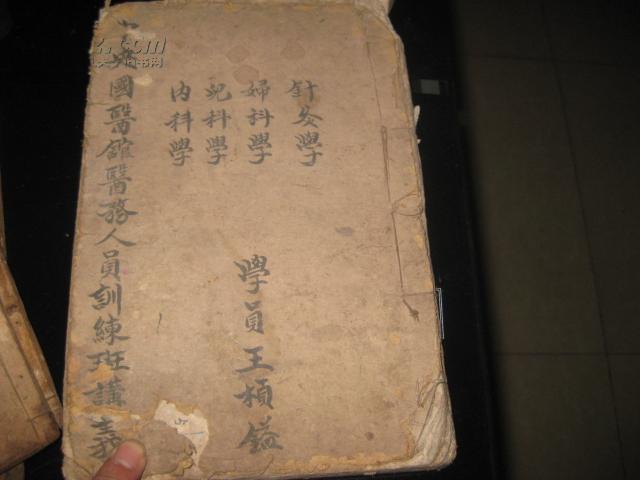 針灸學
婦科學
兒科學
内科學
學員王楨鎰
國醫館醫務人員訓練班講義